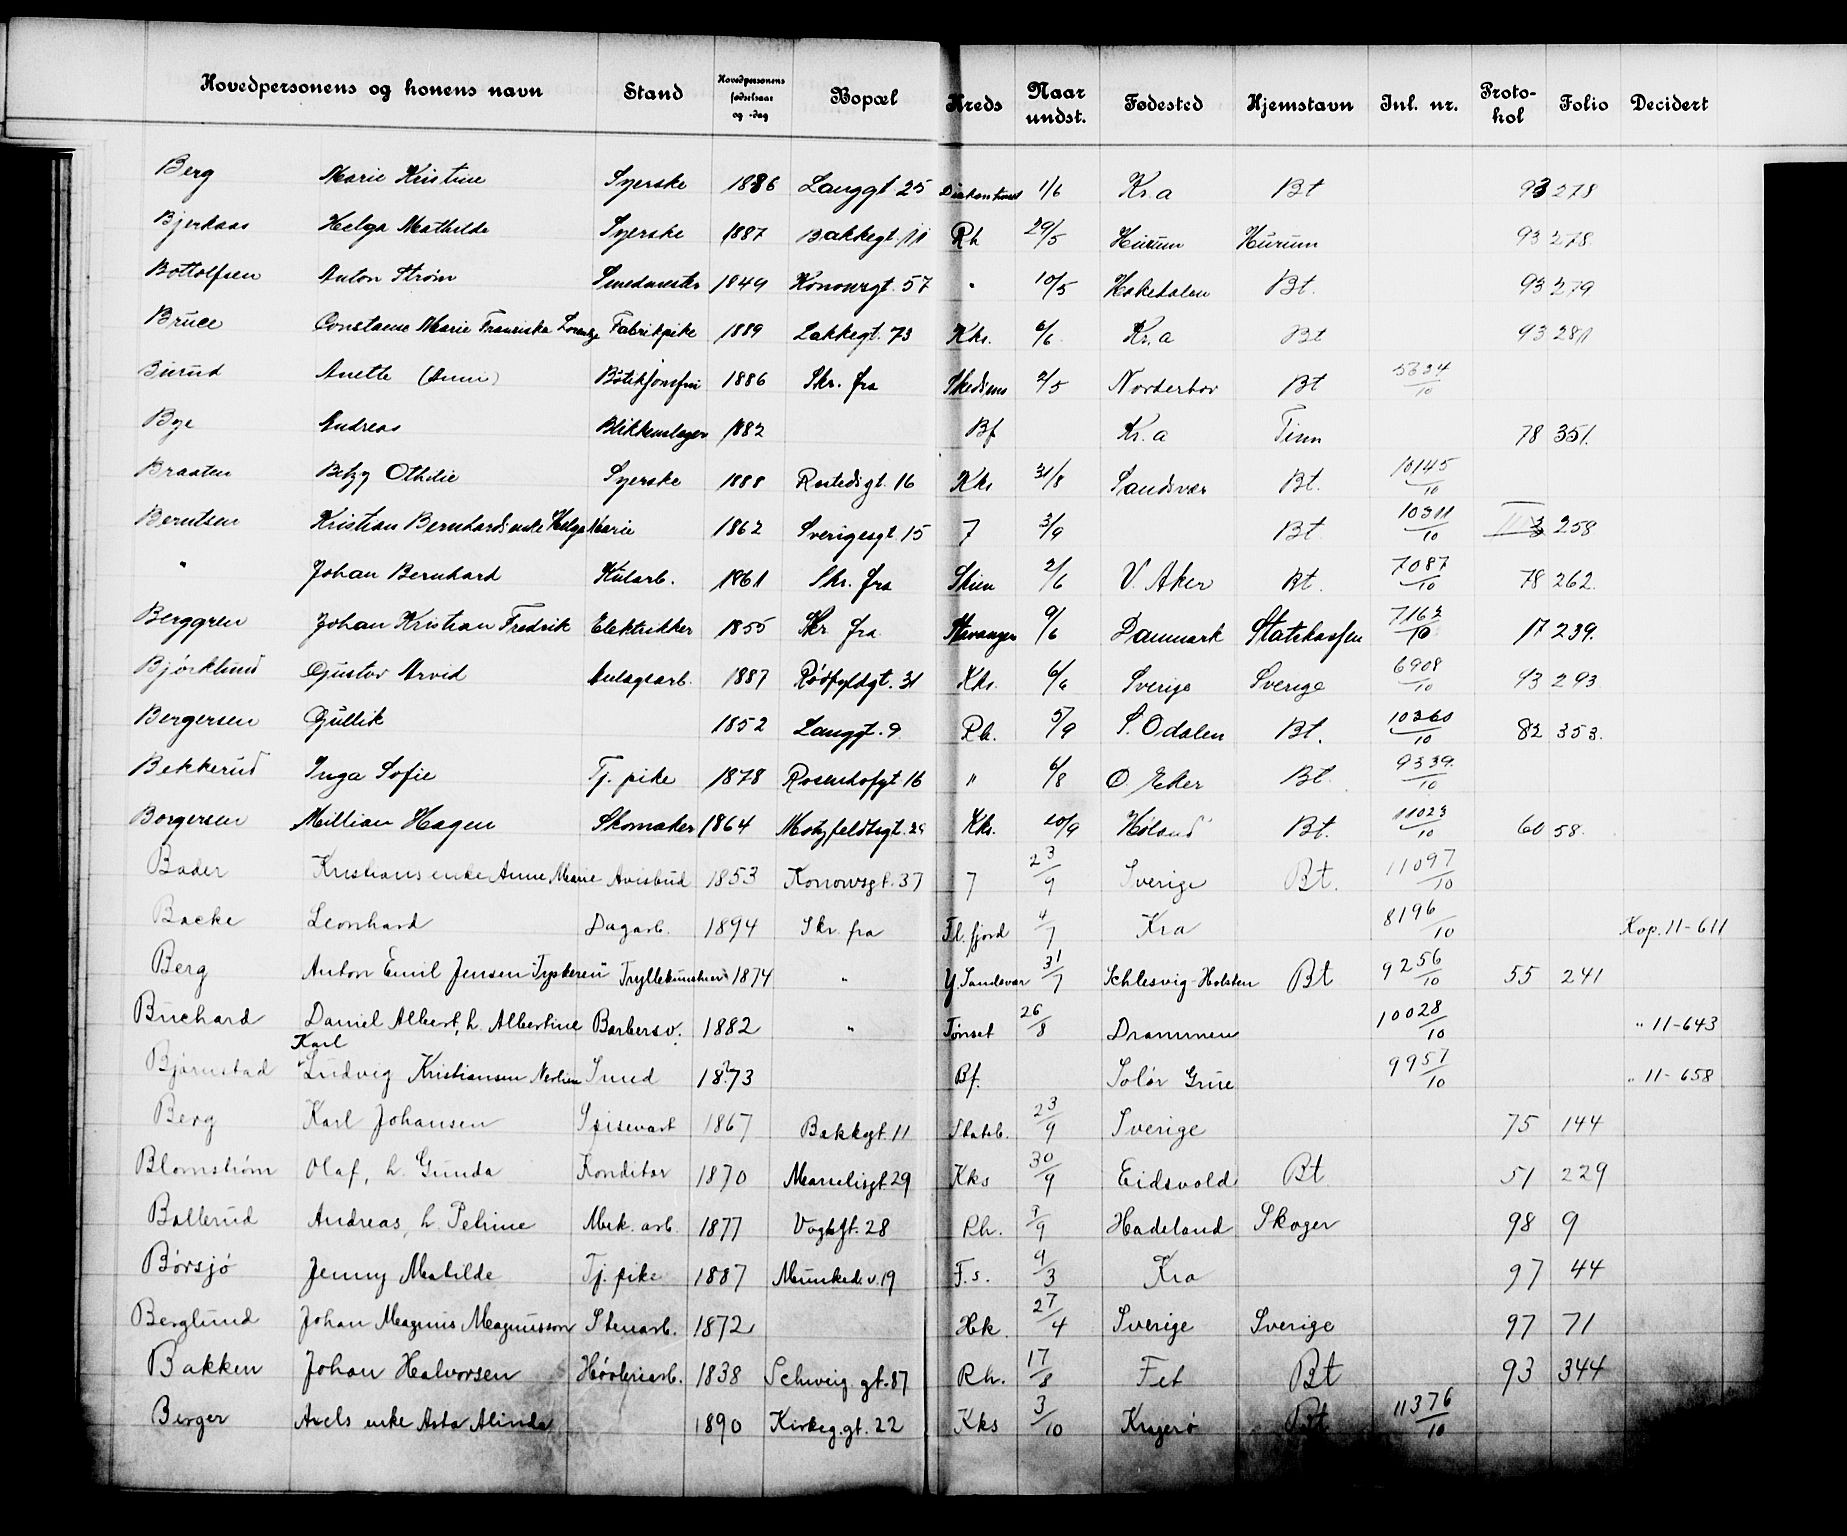 Hovedpersonens og konens navn Stand Hovedpersonens fødselsaar og -dag Bopæl Kreds Naar undst. Fødested Hjemstavn Inl. nr. Protokol Folio Decidert
Berg Marie Kristine Syerske 1886 Langgt 25 Diakonhuset 1/6 Kr.a Bt 93 278
Bjerkaas Helga Mathilde Syerske 1887 Bakkegt. 11 Rh 29/5 Hurum Hurum 93 278
Bottolfsen Anton Strøm Smedmester 1849 Konowsgt. 57 " 10/5 Hakedalen Bt. 93 279
Bruce Constance Marie Franciska Lorentze Fabrikpike 1889 Lakkegt. 73 Kks. 6/6 Kr.a Bt 93 281
Burud Anette (Anni) Butikjomfru 1886 Skr. fra Skedsmo 2/5 Norderhov Bt 5624/10
Bye Andreas Blikkenslager 1882 Bf Kr.a Tinn 78 351.
Braaten Betzy Othilie Syerske 1888 Rostedsgt. 16 Kks 31/8 Sandsvær Bt. 10145/10
Berntsen Kristian Bernhards enke Helga Marie 1862 Sverigesgt. 15 7 3/9 Bt. 10311/10 258
" Johan Bernhard Kularb. 1861 Skr. fra Skien 2/6 V. Aker Bt. 7087/10 78 262.
Berggren Johan Kristian Fredrik Elektrikker 1855 Skr fra Stavanger 9/6 Danmark Statskassen 7162/10 17 239.
Bjørklund Gustav Arvid Anlagsarb. 1887 Rødfyldgt. 31 Kks. 6/6 Sverige Sverige 6908/10 93 293
Bergersen Gullik 1852 Langgt. 9 Rh. 5/9 S. Odalen Bt. 10360/10 82 353.
Bekkerud Inga Sofie Tj. pike 1878 Rosenhofgt 16 " 6/8 Ø. Eker Bt. 9339/10
Borgersen Millian Hagen Skomaker 1864 Motzfeldtsgt. 29 Kks. 20/9 Høland Bt. 11023/10 60 58.
Bader Kristians enke Anne Marie Avisbud 1853 Konowsgt. 37 7 23/9 Sverige Bt. 11097/10
Backe Leonhard Dagarb. 1894 Skr. fra Fl. fjord 4/7 Kra 8196/10 Kop. 11-611
Berg Anton Emil Jensen "Tyskeren" Tryllekunstner 1874 " Y. Sandsvær 31/7 Schlesvig-Holsten Bt 9256/10 55 241
Buchard Daniel Albert, h. Albertine Barbersv. 1882 " Tønset 26/8 Drammen 10028/10 " 11-643
Karl
Bjørnstad Ludvig Kristiansen Nerlien Smed 1873 Bf. Solør Grue 9957/10 " 11-658
Berg Karl Johansen Spisevært 1867 Bakkegt. 11 Statsb. 23/9 Sverige 75 144
Blomstrøm Olaf, h. Gunda Konditor 1870 Marielisgt. 29 Kks 30/9 Eidsvold Bt 51 229
Ballerud Andreas, h. Petrine Mek. arb. 1877 Vogtsgt. 28 Rh. 9/9 Hadeland Skoger 98 9
Børsjø Jenny Matilde Tj. pike 1887 Munkedv. 19 F.s. 9/3 Kra 97 44
Berglund Johan Magnus Magnusson Stenarb. 1872 Hk. 27/4 Sverige Sverige 97 71
Bakken Johan Halvorsen Høvleriarb. 1838 Schweig.gt. 87 Rh. 17/8 Fet Bt 93 344
Berger Axels enke Asta Alinda 1890 Kirkeg.gt. 22 Kks 3/10 Kragerø Bt 11376/10